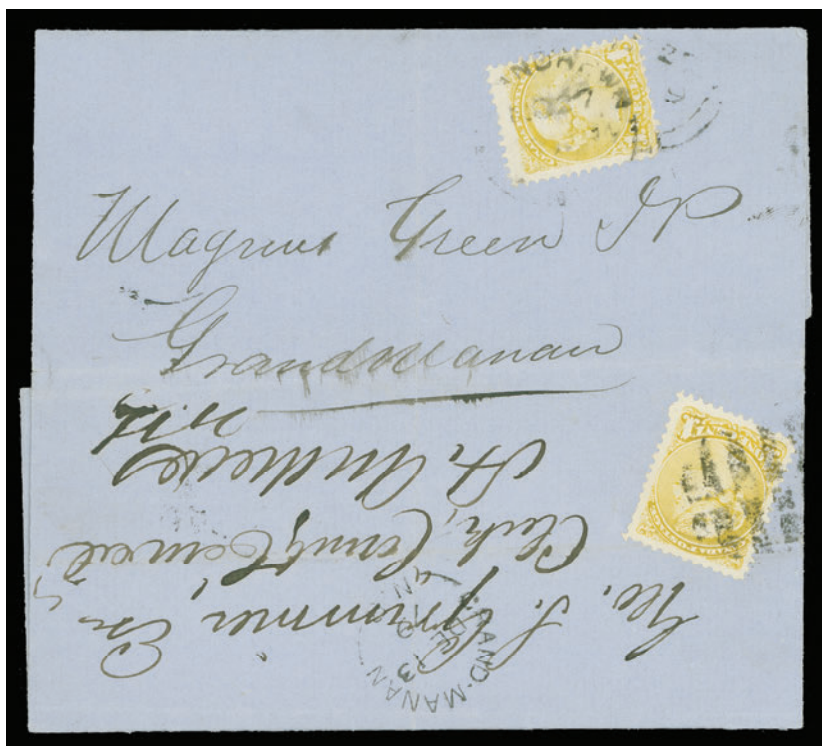 Magnus Green JP
Grand Manan
Geo. S. Grimmer, Esq
Clerk, County Council
St. Andrews
N.B.
GRAND-MANAN
DE 13
N.B